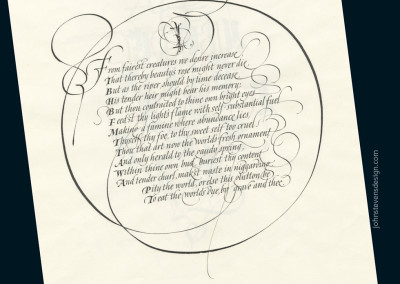 I
From fairest creatures we desire increase
That thereby beautys rose might never die
But as the riper should by time decease
His tender heir might bear his memory:
But thou contracted to thine own bright eyes
Feed'st thy light's flame with self-substantial fuel
Making a famine where abundance lies,
Thyself thy foe, to thy sweet self too cruel
Thou that art now the world's fresh ornament
And only herald to the gaudy spring,
Within thine own bud buriest thy content
And tender churl, mak'st waste in niggarding.
Pity the world, or else this glutton be,
To eat the world's due by grave and thee
johnstevensdesign.com